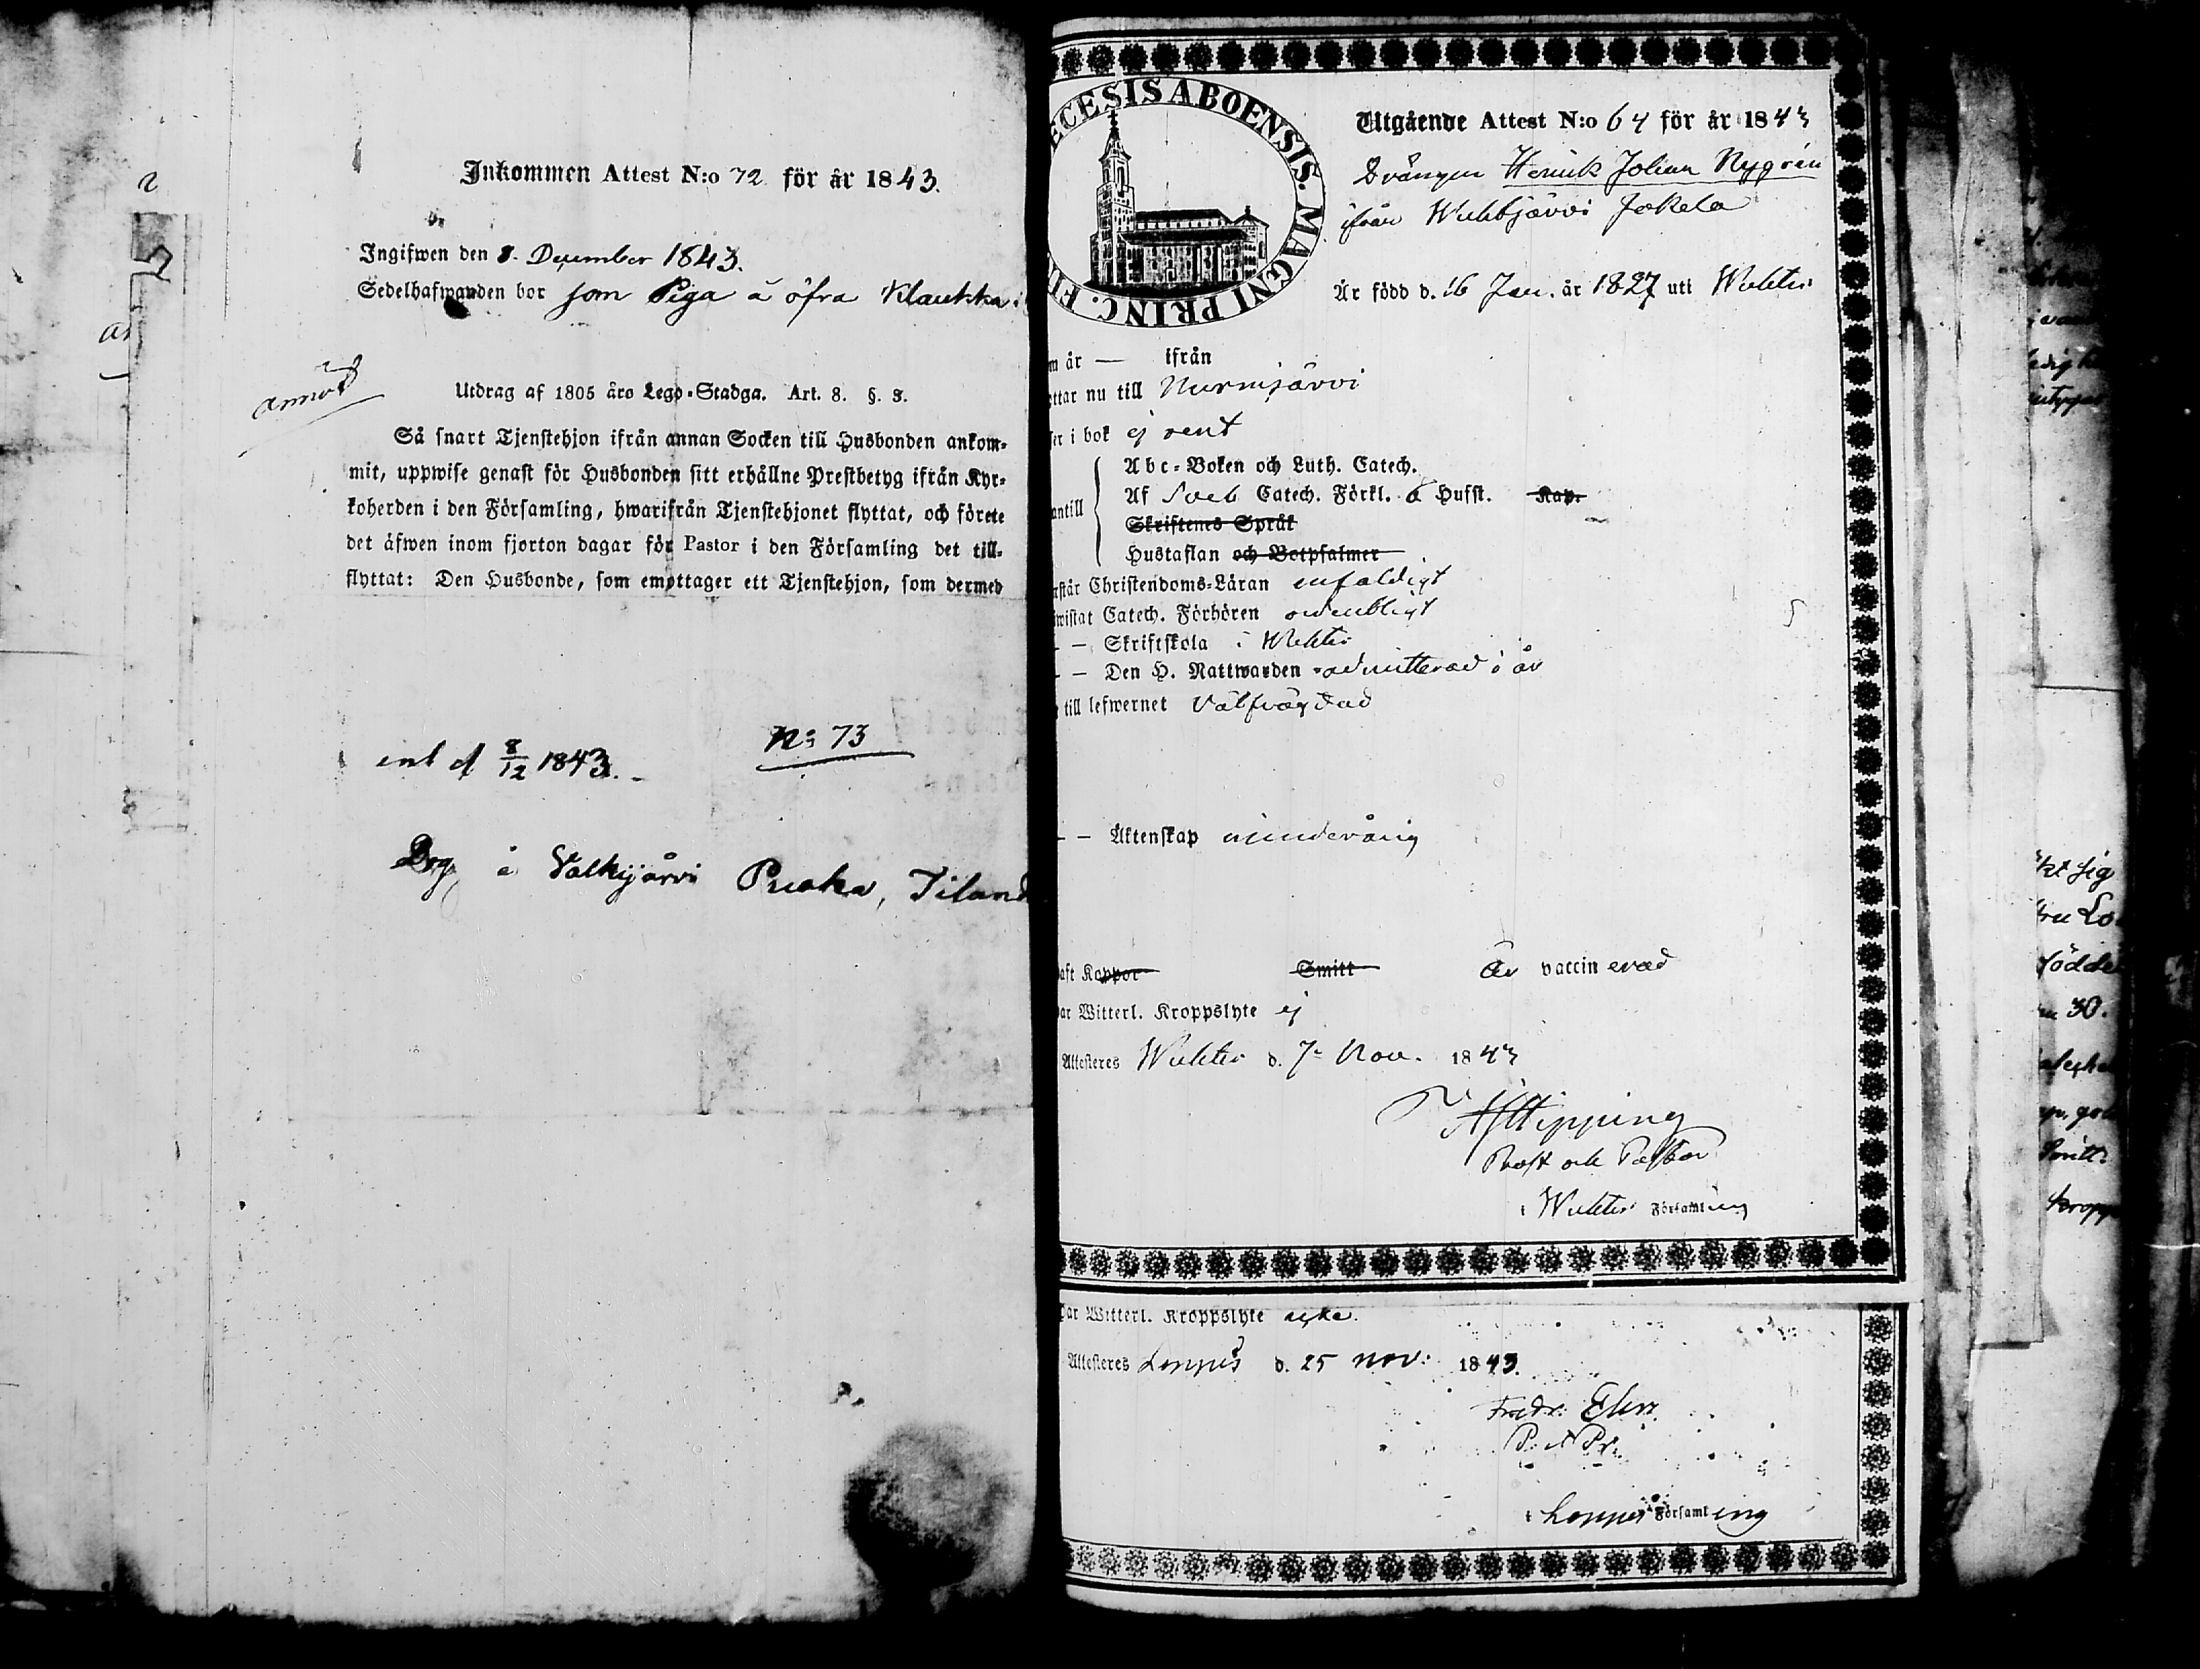 Inkommen Attest N:o 72 för år 1843.
Ingifwen den 8. December 1843.
Sedelhafwanden bor som Piga å öfra Klaukka
annot
Utdrag af 1805 års Lego-Stadga. Art. 8. §. 8.
Så snart Tjenstehjon ifrån annan Socken till Husbonden ankom-
mit, uppwise genast för Husbonden sitt erhållne Prestbetyg ifrån Kyr-
koherden i den Församling, hwarifrån Tjenstehjonet flyttat, och förete
det äfwen inom fjorton dagar för Pastor i den Församling det till-
flyttat: Den Husbonde, som emottager ett Tjenstehjon, som dermed
inl d 8/12 1843.
No 73
Drg å Valkjärvi Puaka, Tiland
ECESIS ABOENSIS. MAGNI PRINC. FI
Utgående Attest N:o 64 för år 1843
Drängen Henrik Johan Nygrén
ifrån Wichtjärvi Jokela
Är född d. 16 Jan. år 1827 uti Wichtis
m år — ifrån
ttar nu till Nurmijärvi
ser i bok ej rent
antill
Abc-Boken och Luth. Catech.
Af Sveb Catech. Förkl. 6 Hufst. Kap.
Skriftenes Språk
Hustaflan och Botpsalmer
rstår Christendoms-Läran enfaldigt
iwistat Catech. Förhören ordentligt
- — Skriftskola i Wichtis
- — Den H. Nattwarden admitterad i år
till lefwernet välfrägdad
- — Äktenskap minderårig
aft Kappor Smitt Är vaccinerad
ar Witterl. Kroppslyte ej
Attesteres Wichtis d. 7 Nov. 1843
Hipping
Prost och Pastor
i Wichtis Församling
Har Witterl. Kroppslyte icke.
Attesteres Loppis d. 25 nov: 1843.
Fredr:
i Loppis Församling
kt sig
fru Lo
födde
30.
kropp